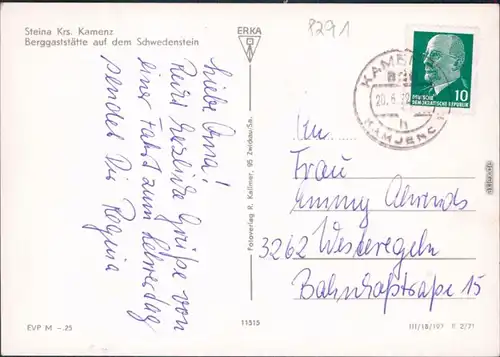 Steina Krs. Kamenz
Berggaststätte auf dem Schwedenstein
ERKA
8291
KAMENZ
20.6.72
h
KAMJENC
DEUTSCHE
DEMOKRATISCHE REPUBLIK
10
Liebe Oma!
Recht herzliche Grüße von
einer Fahrt zum Lehrertag
sendet Dir Regina
Fotoverlag R. Kallmer, 95 Zwickau/Sa.
An
Frau
Emmy Ahrends
3262 Westeregeln
Bahnhofstraße 15
EVP M -.25
11515
III/18/197 K 2/71